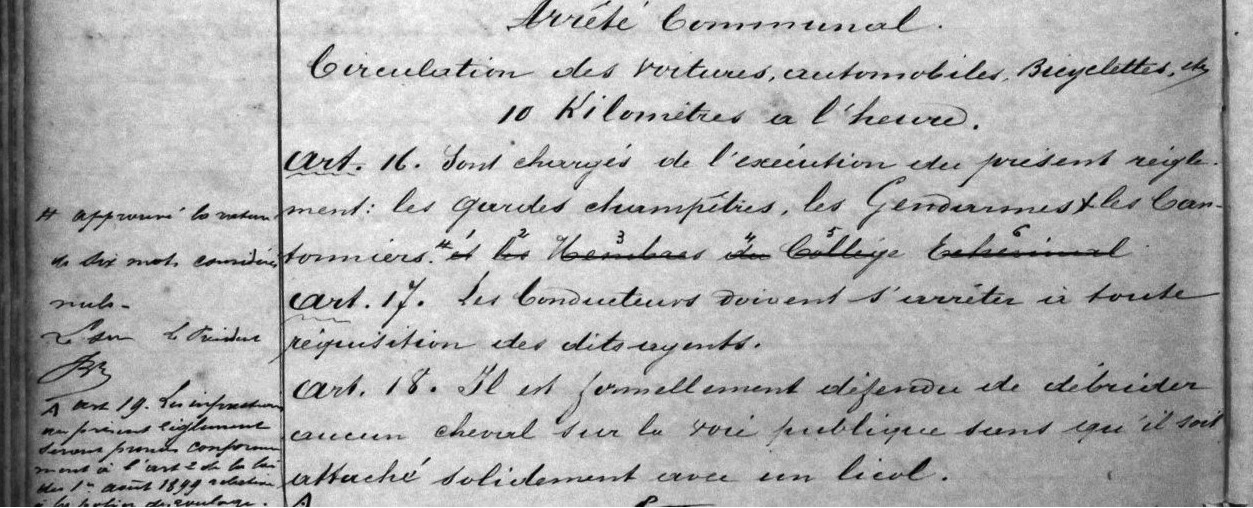 Arrêté Communal.
Circulation des voitures, automobiles, Bicyclettes, etc
10 Kilomètres a l'heure.
Art. 16. Sont chargés de l'exécution du présent règle-
ment: les gardes champêtres, les Gendarmes & les Can-
tonniers. # et les Membres du Collège Echevinal
2 3 4 5 6
Art. 17. Les Conducteurs doivent s'arrêter à toute
réquisition des dits agents.
Art. 18. Il est formellement défendu de débrider
aucun cheval sur la voie publique sans qu'il soit
attaché solidement avec un licol.
A
# approuvé la rature
de six mots considérés
nuls -
Le Président
A art 19. Les infractions
au présent règlement
seront punies conformé-
ment à l'art 2 de la loi
du 1er août 1899 relative
à la police du roulage.